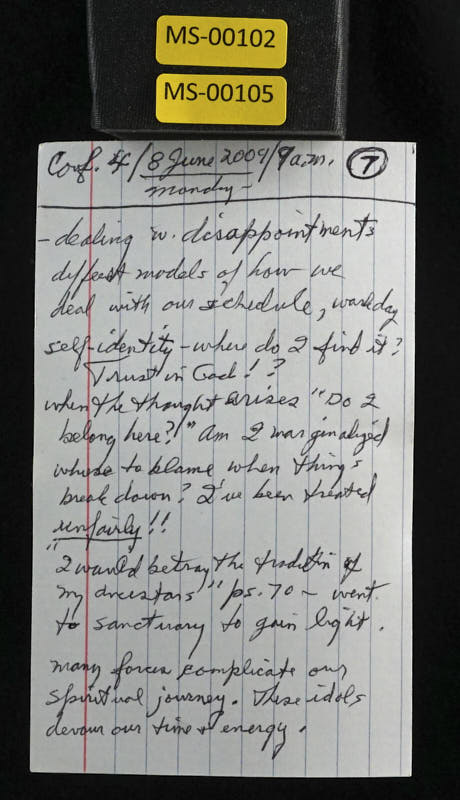 MS-00102
MS-00105
Conf. 4/8 June 2009/9 a.m. 7
Monday -
- dealing w. disappointments
models of how we
deal with our schedule, workday
self-identity - where do I find it?
Trust in God! ?
when the thought arises "Do I
belong here?" Am I marginalized
whose to blame when things
break down? I've been treated
unfairly!!
"I would betray the tradition of
my ancestors" ps. 70 - went
to sanctuary to gain light.
many forces complicate our
spiritual journey. These idols
devour our time & energy.